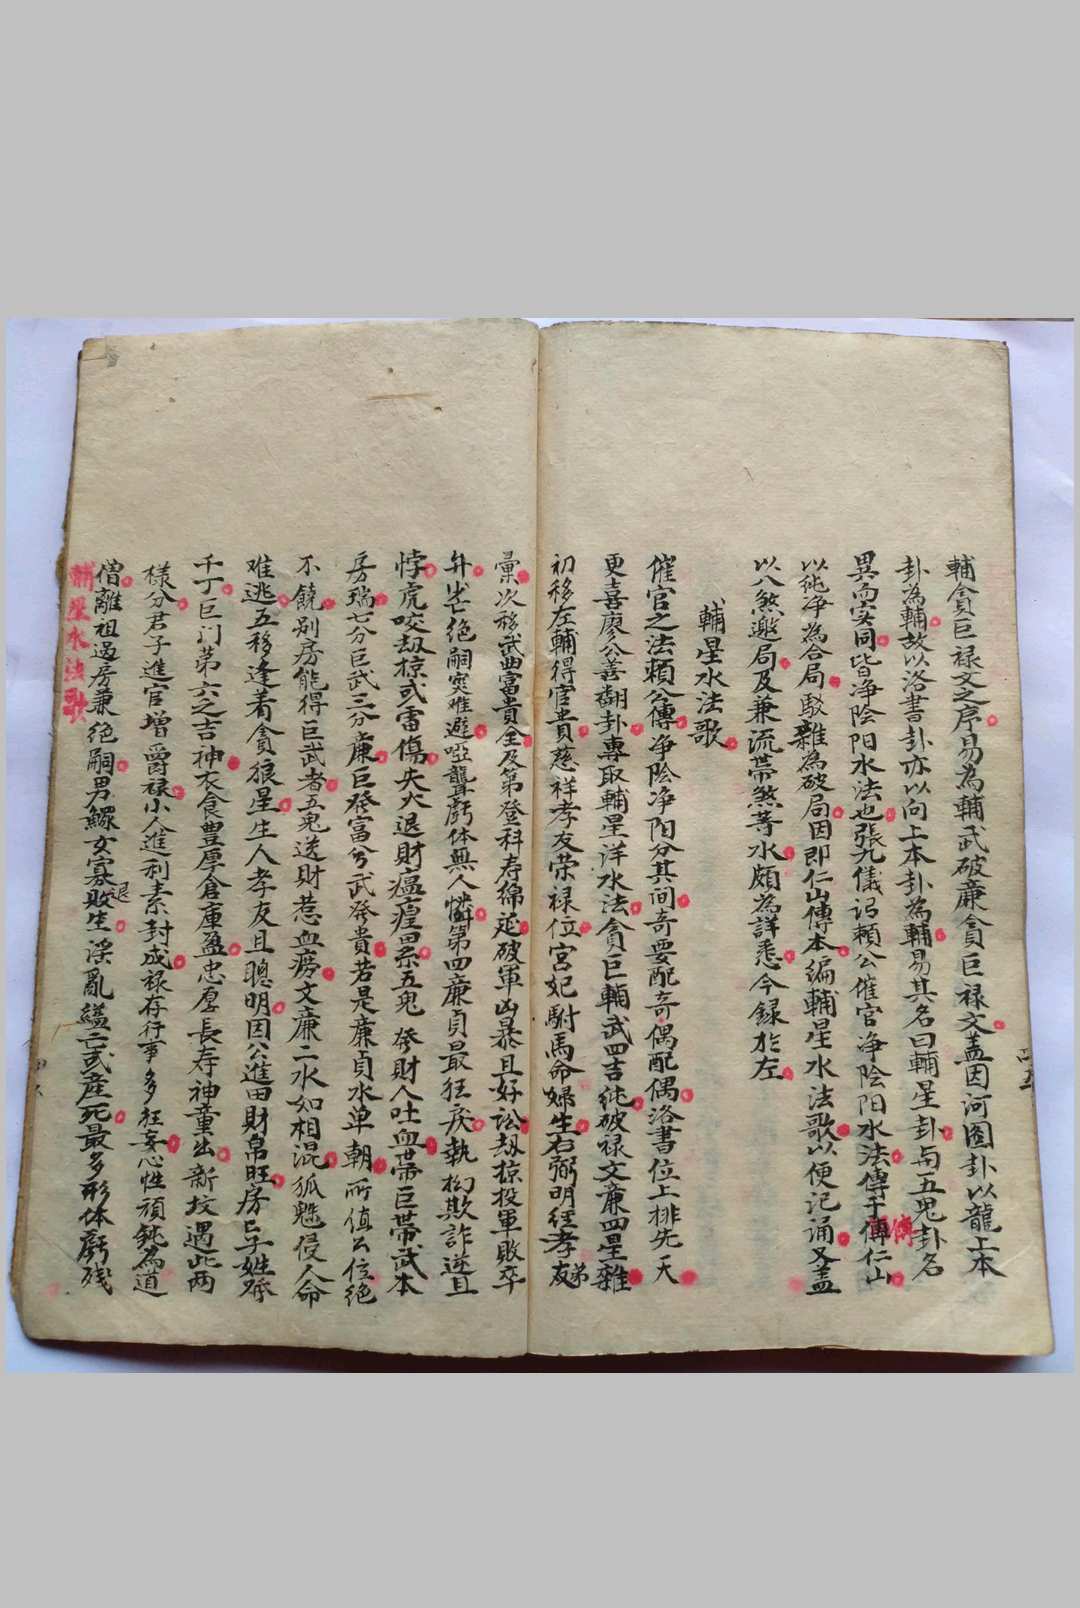 輔貪巨禄文之序易為輔武破廉貪巨禄文盖因河圖卦以龍上本
卦為輔故以洛書卦亦以向上本卦為輔易其名曰輔星卦与五鬼卦名
異而实同皆净陰阳水法也張九儀訂賴公催官净陰阳水法傳于傳仁山
傳
以純净為合局駁雜為破局因即仁山傳本編輔星水法歌以便记诵又盖
以八煞邀局及兼流帶煞等水頗為詳悉今録於左
輔星水法歌
催官之法賴公傳净陰净阳分其间奇要配奇偶配偶洛書位上排先天
更喜廖公善翻卦專取輔星洋水法貪巨輔武四吉純破禄文廉四星雜
初移左輔得官貴慈祥孝友荣禄位宮妃駙馬命婦生右弼明经孝友弟
彙次移武曲富貴全及第登科寿綿延破軍凶暴且好讼刼掠投軍敗卒
弁少亡绝嗣实难避啞聾虧体無人憐第四廉貞最狂戾執拗欺詐逆且
悖虎咬刼掠或雷傷失火退財瘟瘟累五鬼發財人吐血帶巨帶武本
房瑞七分巨武三分廉巨發富兮武發貴若是廉貞水单朝所值公位绝
不饒别房能得巨武者五鬼送財惹血痨文廉二水如相混狐魅侵人命
难逃五移逢着貪狼星生人孝友且聰明因公進田財帛旺房巳子姓斈
千丁巨门第六之吉神衣食豊厚倉庫盈忠厚長寿神童出新坟遇此两
樣分君子進官增爵禄小人進利素封成禄存行事多狂妄心性頑鈍為道
僧離祖過房兼绝嗣男鰥女寡敗退生淫亂縊亡或產死最多形体虧残
輔星水法歌